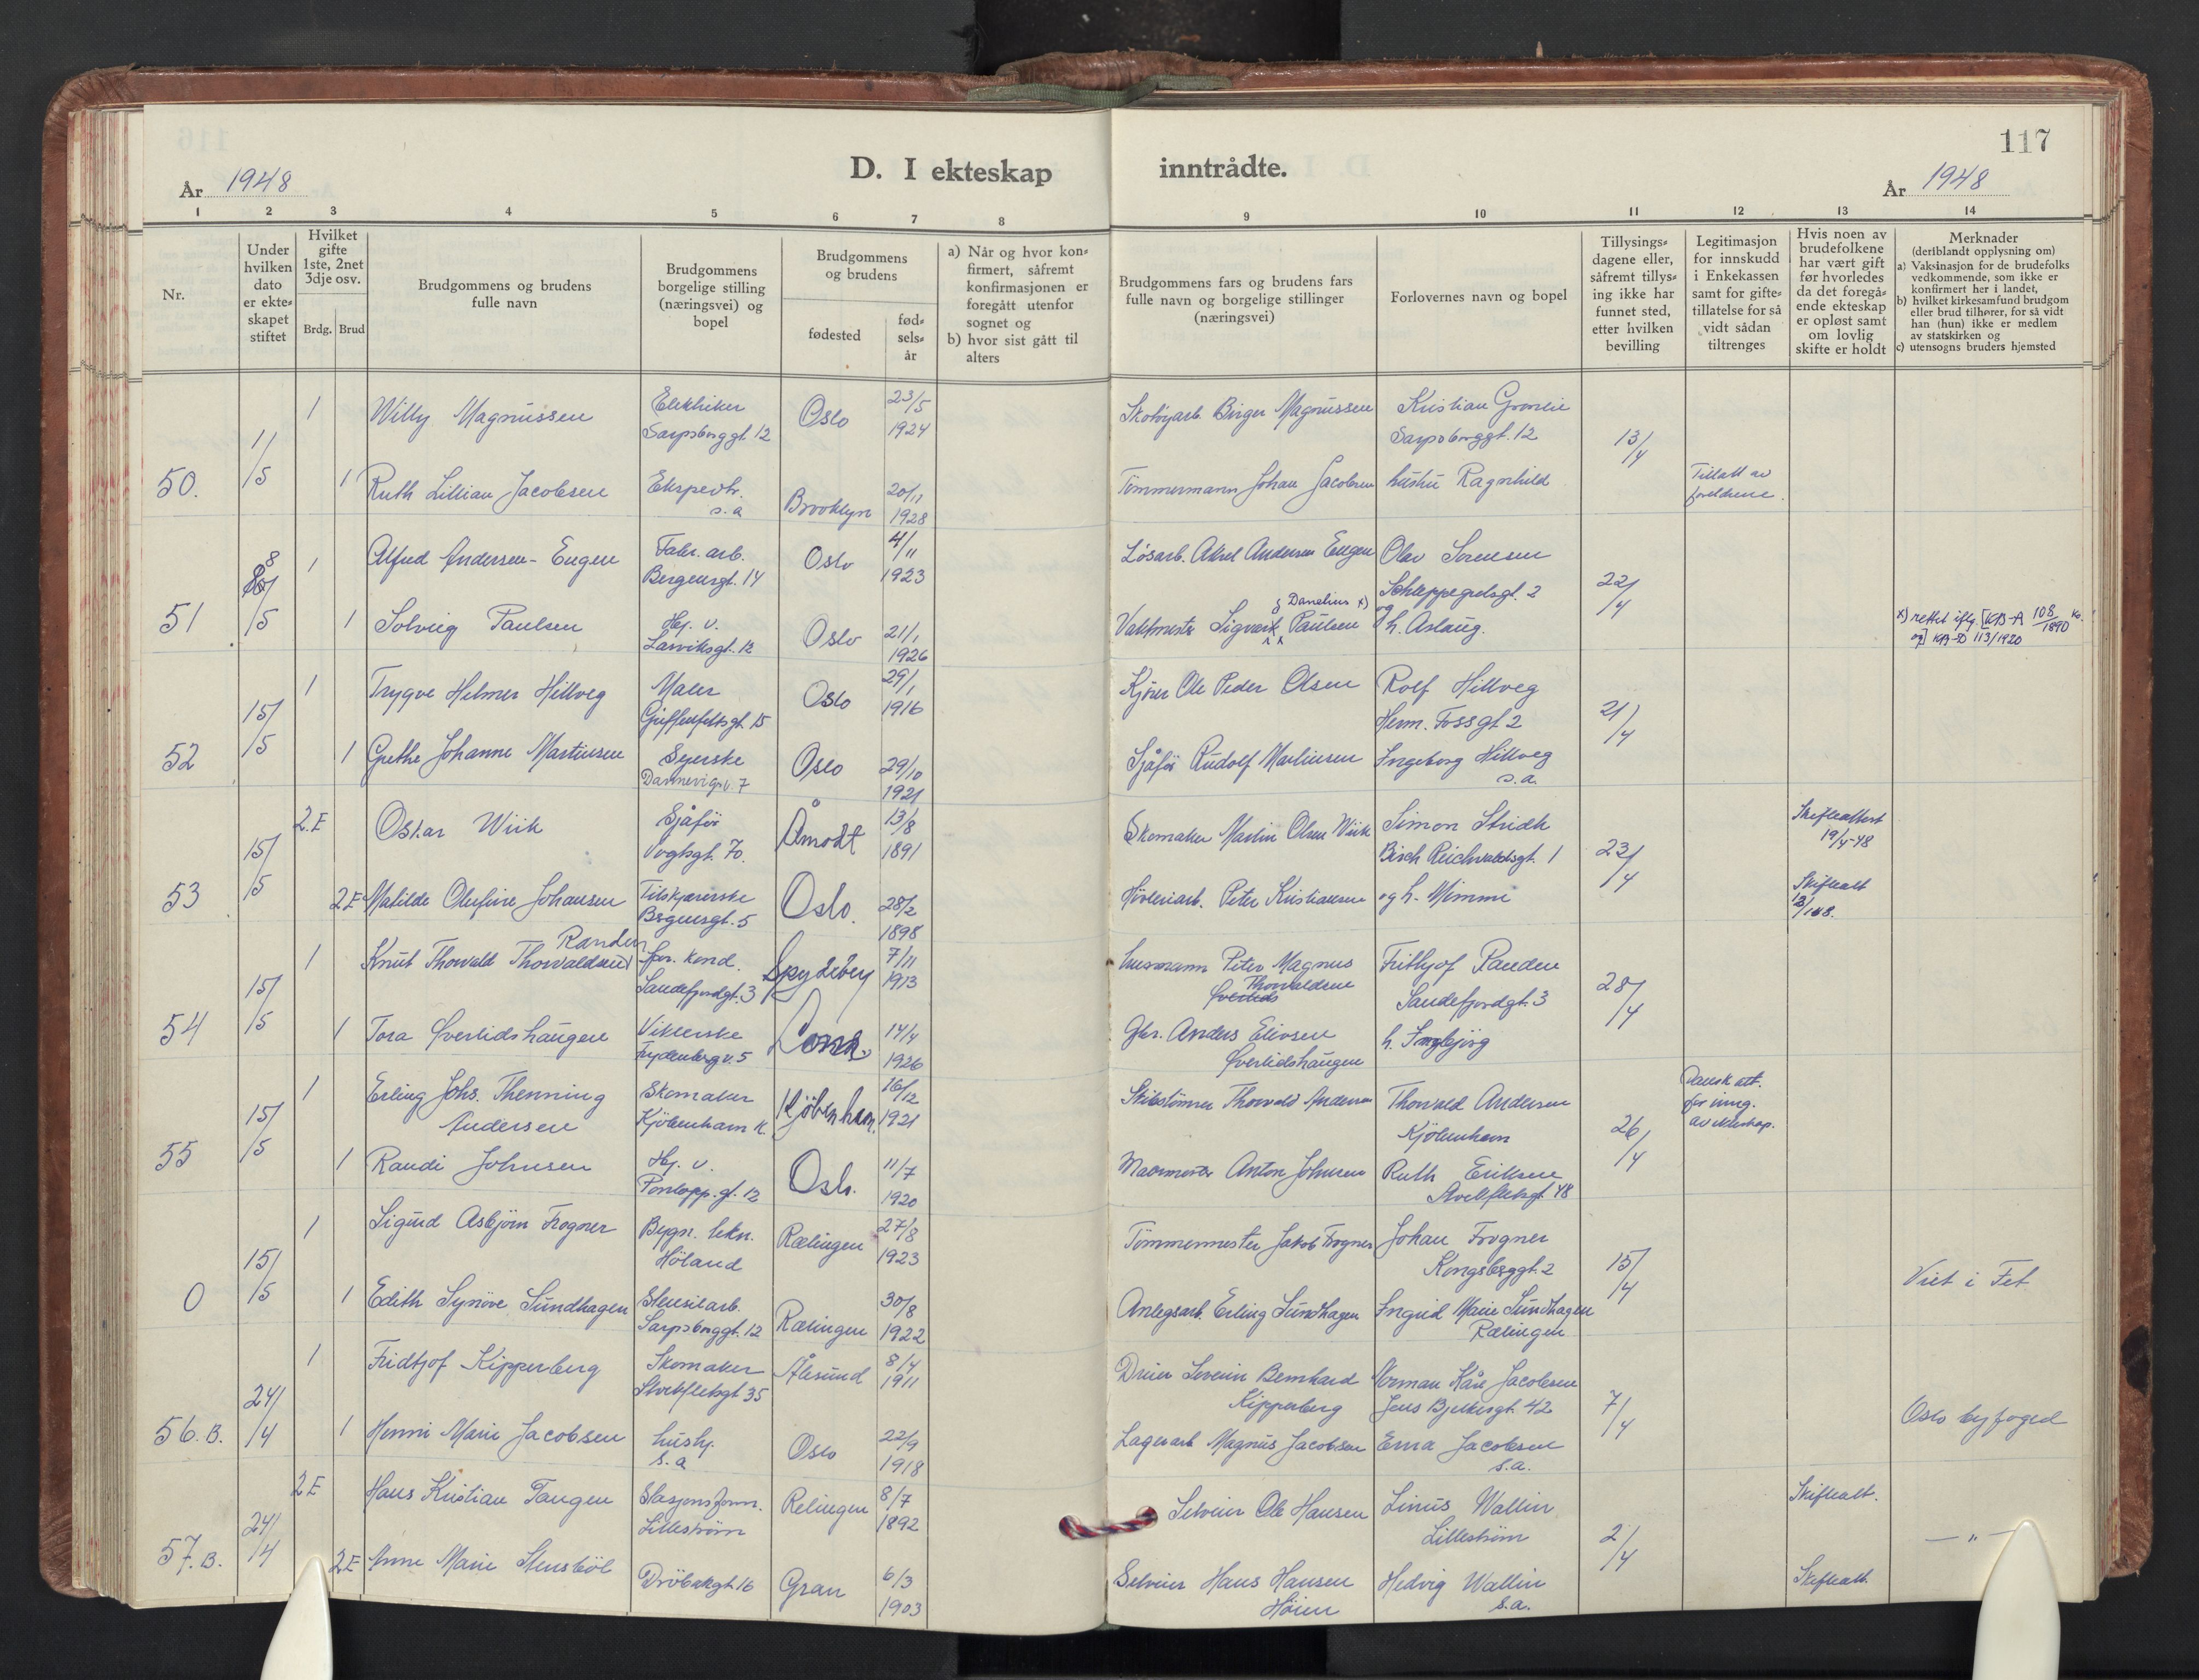 117
År 1948
D. I ekteskap inntrådte.
År 1948
1 2 3 4 5 6 7 8 9 10 11 12 13 14
Nr.
Under
hvilken
dato
er ekte-
skapet
stiftet
Hvilket
gifte
1ste, 2net
3dje osv.
Brdg. Brud
Brudgommens og brudens
fulle navn
Brudgommens
borgelige stilling
(næringsvei) og
bopel
Brudgommens
og brudens
fødested
fød-
sels-
år
a) Når og hvor kon-
firmert, såfremt
konfirmasjonen er
foregått utenfor
sognet og
b) hvor sist gått til
alters
Brudgommens fars og brudens fars
fulle navn og borgelige stillinger
(næringsvei)
Forlovernes navn og bopel
Tillysings-
dagene eller,
såfremt tillys-
ing ikke har
funnet sted,
etter hvilken
bevilling
Legitimasjon
for innskudd
i Enkekassen
samt for gifte-
tillatelse for så
vidt sådan
tiltrenges
Hvis noen av
brudefolkene
har vært gift
før hvorledes
da det foregå-
ende ekteskap
er opløst samt
om lovlig
skifte er holdt
Merknader
(deriblandt opplysning om)
a) Vaksinasjon for de brudefolks
vedkommende, som ikke er
konfirmert her i landet,
b) hvilket kirkesamfund brudgom
eller brud tilhører, for så vidt
han (hun) ikke er medlem
av statskirken og
c) utensogns bruders hjemsted
1 Willy Magnussen Elektriker Oslo 23/5 Skotøyarb. Birger Magnussen Kristian Gronlie
1/5 Sarpsborggt. 12 1924 Sarpsborggt. 12 13/4
50. 1 Ruth Lillian Jacobsen Ekspedtr. Brooklyn 20/11 Tømmermann Johan Jacobsen hustru Ragnhild Tillatt av
s.a 1928 foreldrene.
1 Alfred Andersen-Engen Fabr. arb. Oslo 4/11 Løsarb. Aksel Andersen Engen Olav Sorensen
8/5 Bergensgt. 14 1923 Schleppegrelsgt. 2 22/4
Danelius x)
51 1 Solveig Paulsen Hj. v. Oslo 21/1 Vaktmester Sigvart Paulsen og h. Aslaug. x) rettet iflg. [KB-A 108/1890
Larviksgt. 12 1926 og] KB-D 113/1920
1 Trygve Helmer Hillveg Maler Oslo 29/1 Kjører Ole Peder Olsen Rolf Hillveg
15/5 Griffenfeltsgt. 15 1916 Herm. Fossgt 2 21/4
52 1 Grethe Johanne Martinsen Syerske Oslo 29/10 Sjåfør Rudolf Martinsen Ingeborg Hillveg
Dannevigsv. 7 1921 s.a.
2.E Oskar Wiik Sjåfør Åmodt 13/8 Skomaker Martin Olsen Wiik Simon Stridh Skifteattest
15/5 Vogtsgt. 70. 1891 Bisch Reichwaldsgt. 1 23/4 19/4-48
53 2E Matilde Olufine Johansen Tilskjærerske Oslo. 28/2 Høvleriarb. Peter Kristiansen og h. Mimmi Skifteatt
Bergensgt. 5 1898
Randen
1 Knut Thorvald Thorvaldsen for. kand. Spydeberg 7/11 husmann Peter Magnus Frithjof Randen
15/5 Sandefjordgt. 3 1913 Thorvaldsen Sandefjordgt. 3 28/4
54 1 Tora Øverlidshaugen Viklerske Lom. 14/4 Gbr. Anders Elivsen h. Ingbjørg
Frydenbergv. 5 1926 Øverlidshaugen
1 Erling Johs. Thenning Skomaker Kjøbenhavn. 16/12 Skibstømrer Thorvald Andersen Thorvald Andersen Dansk att.
15/5 Andersen Kjøbenhavn K. 1921 Kjøbenhavn 26/4 for inng.
av ekteskap.
55 1 Randi Johnsen Hj. v. Oslo. 11/7 Murmester Anton Johnsen Ruth Eriksen
Pontopp. gt. 12 1920 Stockfletsgt 48
1 Sigurd Asbjørn Frogner Bygn. tekn. Rælingen 27/8 Tømmermester Jakob Frogner Johan Frogner
15/5 Høland 1923 Kongsberggt. 2 15/4 Viet i Fet
0 1 Edith Synøve Sundhagen Stensilarb. Rælingen 30/8 Anlegsarb. Erling Sundhagen Ingrid Marie Sundhagen
Sarpsborggt. 12 1922 Rælingen
1 Fridtjof Kipperberg Skomaker Ålesund 8/4 Dreier Severin Bernhard Norman Kåre Jacobsen
24/4 Stockfletsgt 35 1911 Kipperberg Jens Bjelkesgt. 42 7/4 Oslo byfoged
56. B. 1 Henni Marie Jacobsen hush. Oslo 22/9 Lagerarb Magnus Jacobsen Erna Jacobsen
s.a 1918 s.a.
2E Hans Kristian Tangen Stasjonsform. Relingen 8/7 Selveier Ole Hansen Linus Wallin Skifteatt.
24/4 Lillestrøm 1892 Lillestrøm 2/4 — " —
57. B. 2E Anne Marie Stensbøl Drøbakgt. 16 Gran 6/3 Selveier Hans Hansen Hedvig Wallin Skifteatt.
1903 Høien s.a.